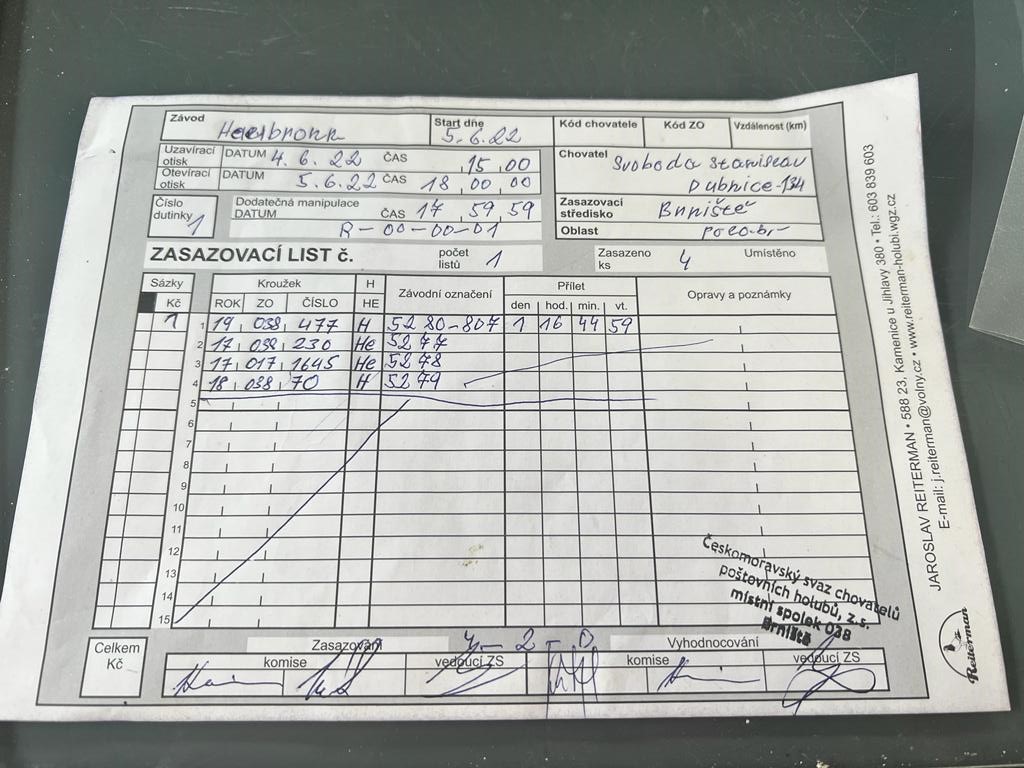 Závod Heilbronn Start dne 5.6.22 Kód chovatele Kód ZO Vzdálenost (km)
Uzavírací otisk DATUM 4.6.22 ČAS 15,00
Otevírací otisk DATUM 5.6.22 ČAS 18,00,00
Chovatel Svoboda Stanislav
Dubnice 134
Číslo dutinky 1 Dodatečná manipulace DATUM ČAS 17,59,59
R-00-00-01
Zasazovací středisko Brniště
Oblast
ZASAZOVACÍ LIST č. počet listů 1 Zasazeno ks 4 Umístěno
Sázky Kroužek H Závodní označení Přílet Opravy a poznámky
Kč ROK ZO ČÍSLO HE den hod. min. vt.
1 1 19 038 477 H 5280-807 1 16 44 59
2 17 038 230 He 5277
3 17 017 1645 He 5278
4 18 038 70 H 5279
5
6
7
8
9
10
11
12
13
14
15
Českomoravský svaz chovatelů
poštovních holubů, z.s.
místní spolek 038
Brniště
Celkem Kč Zasazování 4-2 0 Vyhodnocování
komise vedoucí ZS komise vedoucí ZS
JAROSLAV REITERMAN • 588 23, Kamenice u Jihlavy 380 • Tel.: 603 839 603
E-mail: j.reiterman@volny.cz • www.reiterman-holubi.wgz.cz
Reiterman